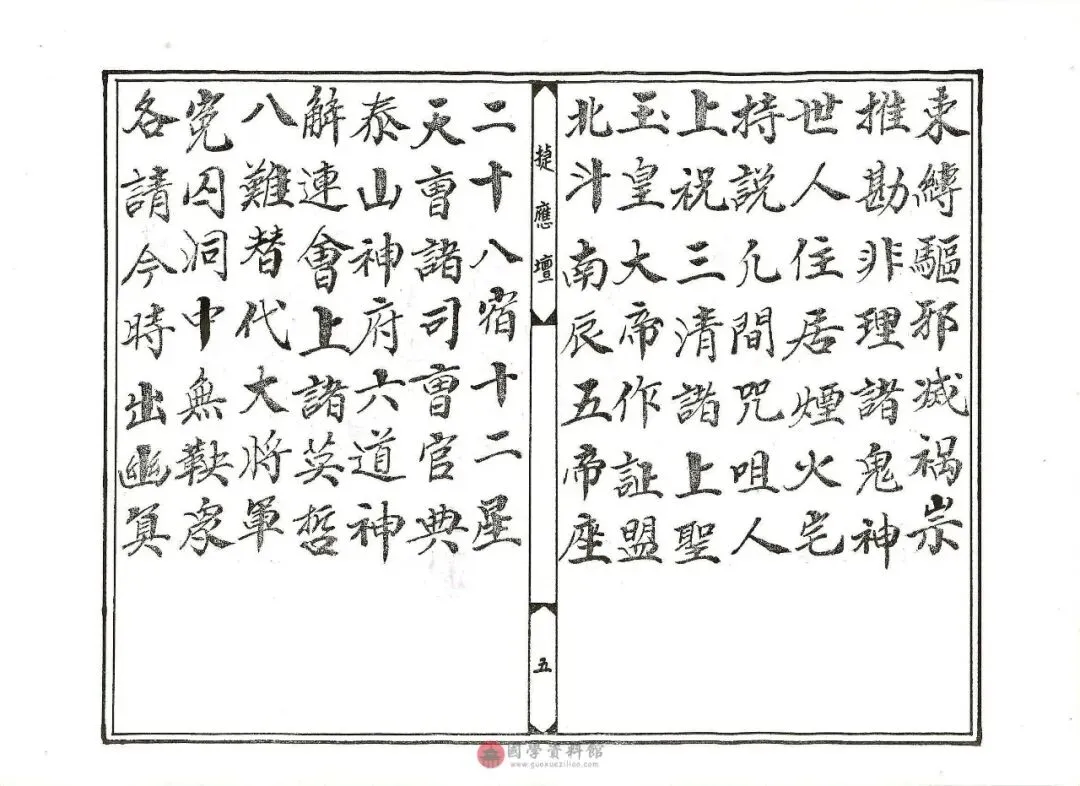 束縛驅邪滅禍祟
推勘非理諸鬼神
世人住居煙火宅
持說凢間咒咀人
上祝三清諸上聖
玉皇大帝作証盟
北斗南辰五帝座
捷應壇
五
二十八宿十二星
天曹諸司曹官典
泰山神府六道神
解連會上諸英哲
八難替代大將軍
寃囚洞中無鞅衆
各請今時出幽冥
國學資料館
www.guoxueziliao.com